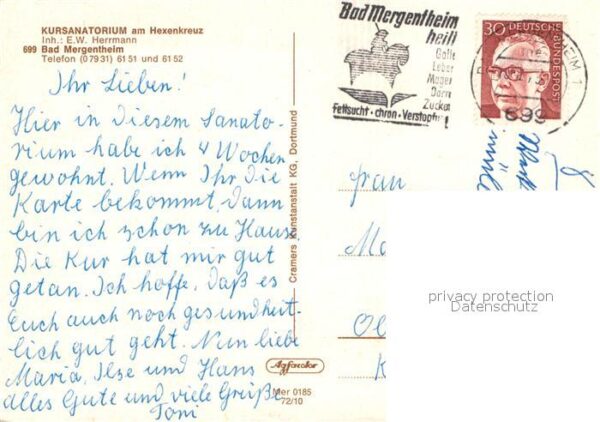 KURSANATORIUM am Hexenkreuz
Inh.: E.W. Herrmann
699 Bad Mergentheim
Telefon (07931) 6151 und 6152
Ihr Lieben!
Hier in diesem Sanato-
rium habe ich 4 Wochen
gewohnt. Wenn Ihr die
Karte bekommt, dann
bin ich schon zu Haus.
Die Kur hat mir gut
getan. Ich hoffe, daß es
Euch auch noch gesundheit-
lich gut geht. Nun liebe
Maria, Ilse und Hans
alles Gute und viele Grüße
Toni
Cramers Kunstanstalt KG, Dortmund
Agfacolor
Mer 0185
72/10
Bad Mergentheim
heilt
Galle
Leber
Magen
Darm
Zucker
Fettsucht · chron · Verstopfg
30
DEUTSCHE
BUNDESPOST
699
Frau
privacy protection
Datenschutz